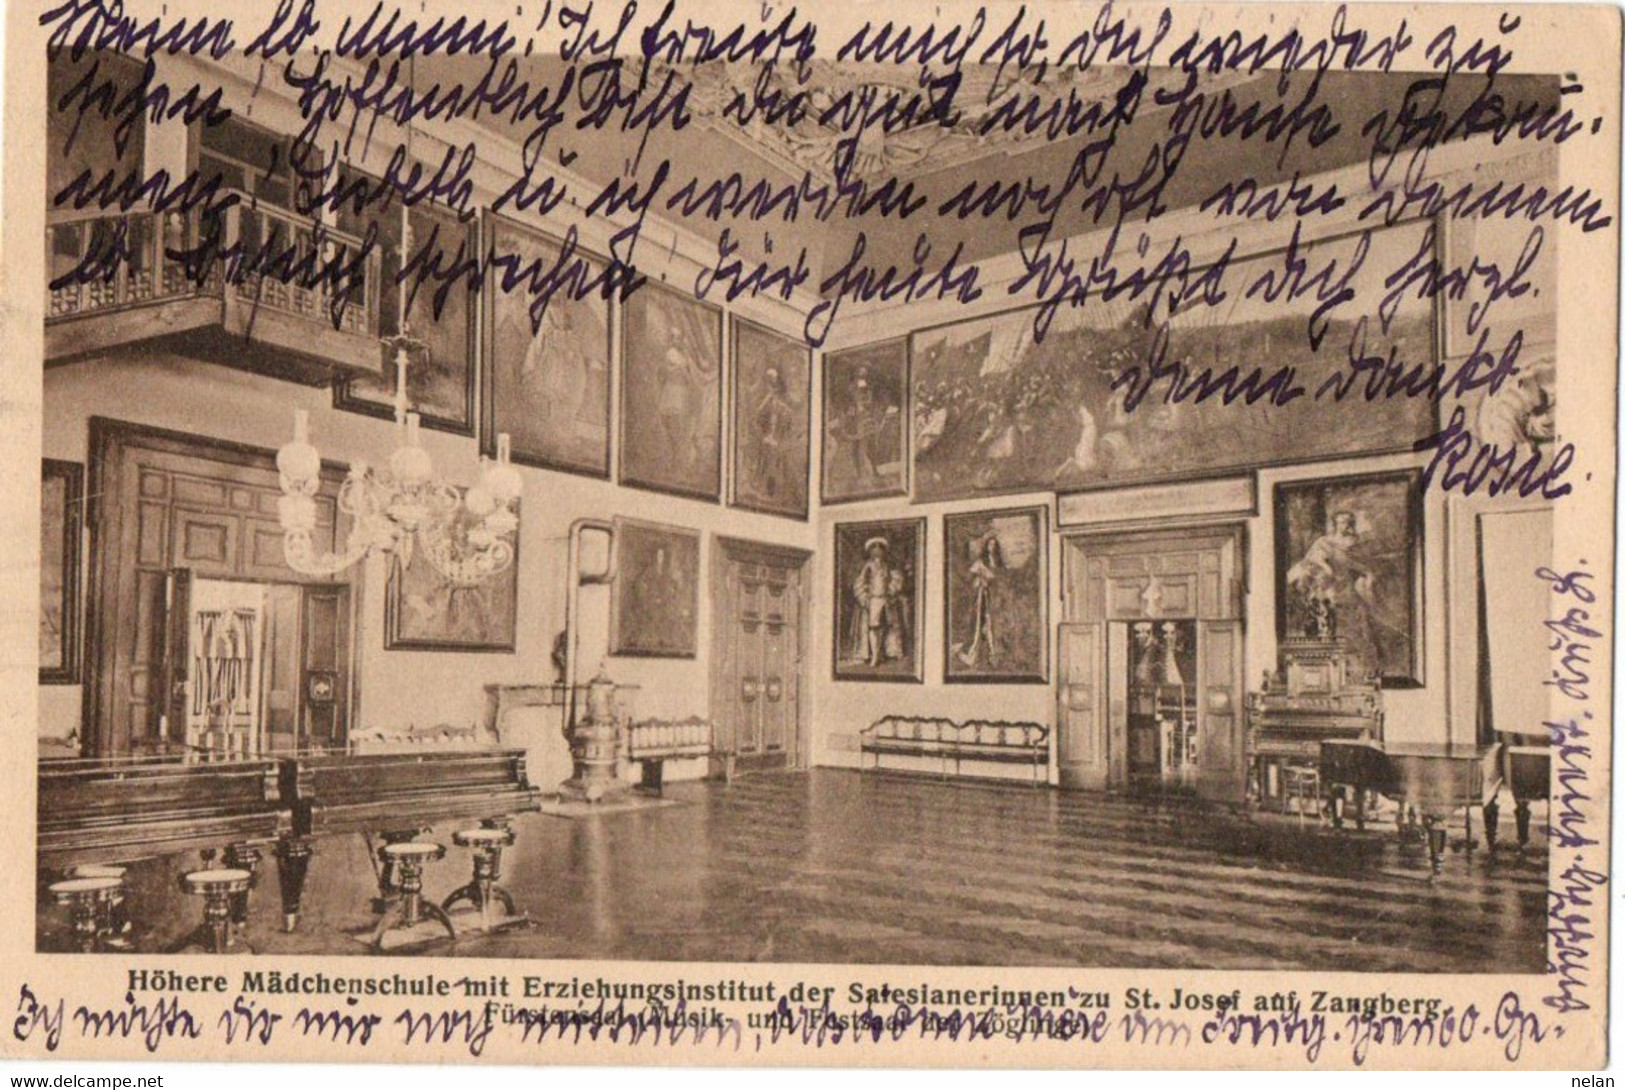 Meine lb. Mimi! Ich freute mich so, dich wieder zu
sehen! Hoffentlich bist du gut nach Hause gekom-
men! Lisbeth u. ich werden noch oft von deinem
lb. Besuch sprechen! Für heute Grüßt dich herzl.
deine dankb.
Rosel.
Höhere Mädchenschule mit Erziehungsinstitut der Salesianerinnen zu St. Josef auf Zangberg.
Fürstensaal (Musik- und Festsaal der Zöglinge).
Ich möchte dir nur noch mitteilen, dass am ihren 60. Ge-
feiert.
nelan